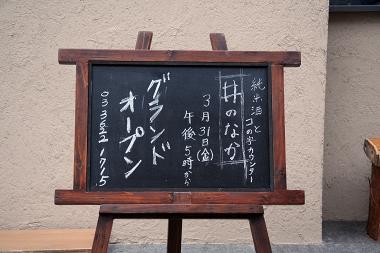 純米酒と
コの字カウンター
井のなか
3月31日(金)
午後5時から
グランド
オープン